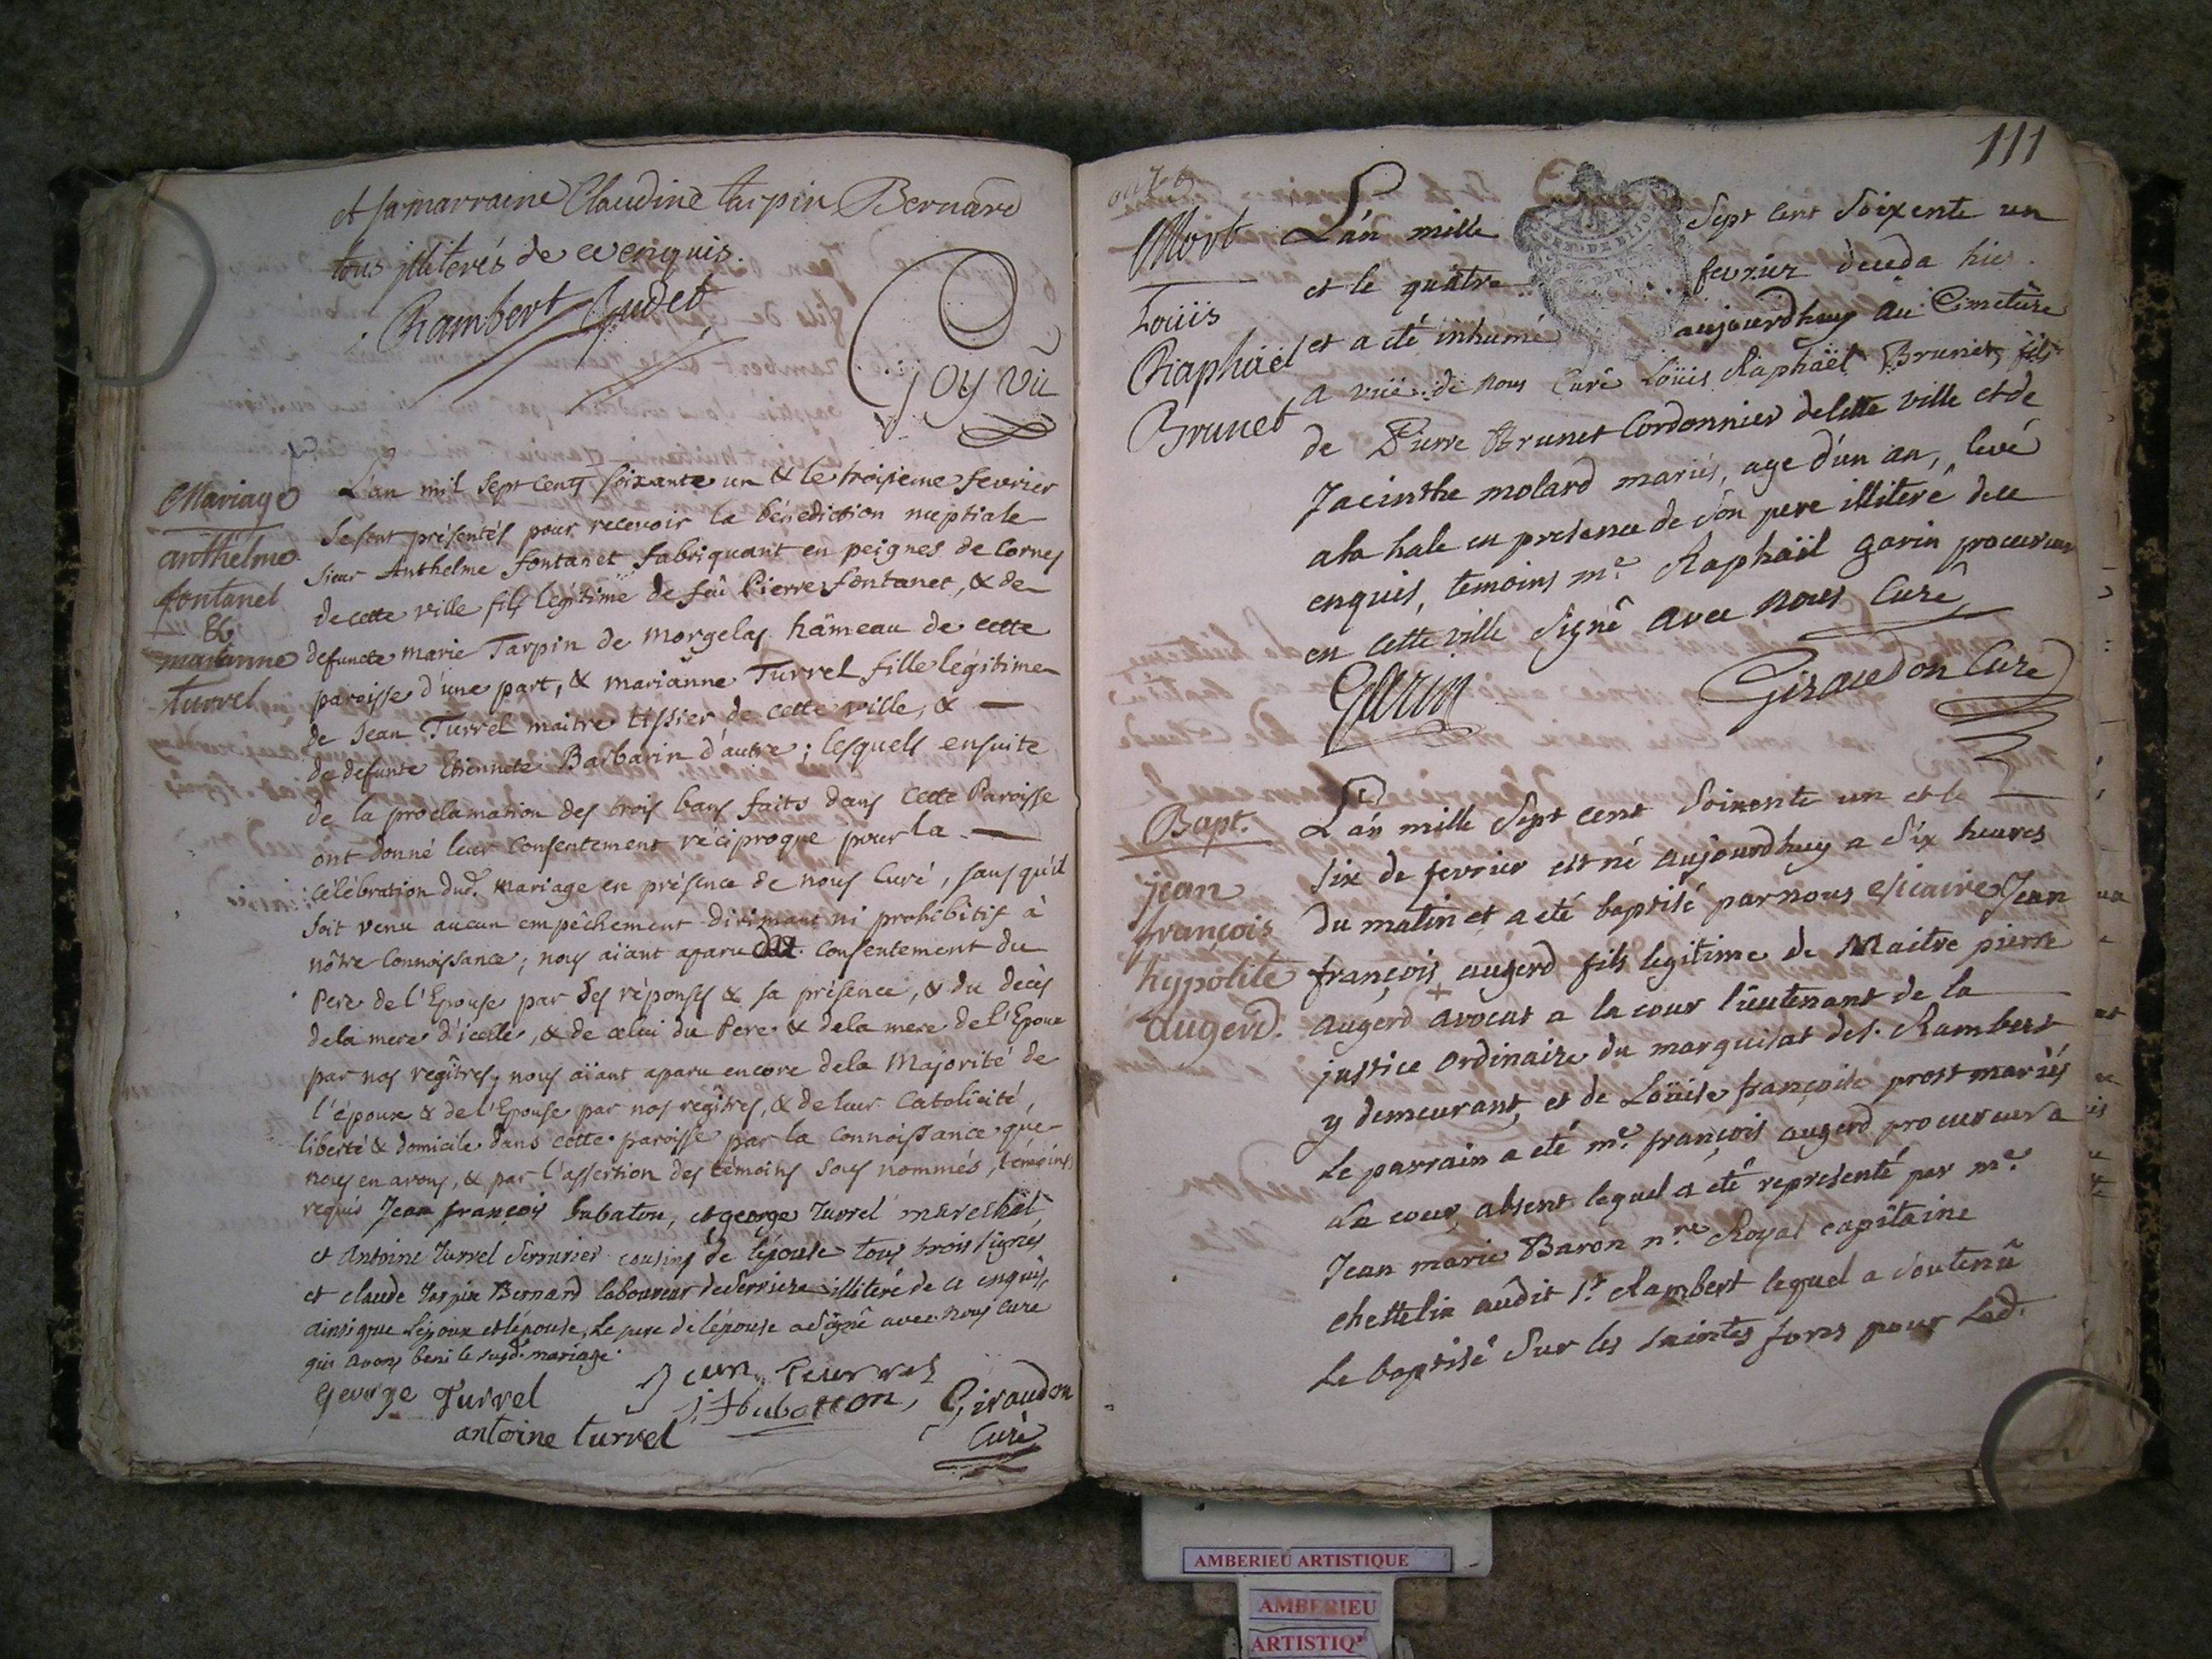 et sa marraine Claudine tarpin Bernard
tous illiterés de ce enquis.
Chambert Judet
j oy vû
Mariage
anthelme
fontanel
&
marianne
turrel
L'an mil sept cents soixante un & le troisieme fevrier
se sont présentés pour recevoir la bénediction nuptiale
sieur Anthelme fontanet fabriquant en peignes de Cornes
de cette ville fils légitime de fûi Pierre fontanet, & de
defuncte marie Tarpin de morgelas hâmeau de cette
paroisse d'une part, & marianne Turrel fille légitime
de Jean Turrel maitre tissier de cette ville, &
de defunte Etiennete Barbarin d'autre ; lesquels ensuite
de la proclamation des trois bans faits dans cette Paroisse
ont donné leur consentement réciproque pour la
célébration dud. mariage en présence de nous Curé, sans qu'il
soit venu aucun empêchement dirimant ni prohibitif à
nôtre connoissance ; nous aïant aparu consentement du
Pere de l'Epouse par ses réponses & sa présence, & du decès
de la mere d'icelle, & de celui du Pere & de la mere de l'Epoux
par nos regîtres, nous aïant aparu encore de la Majorité de
l'époux & de l'Epouse par nos regîtres, & de leur Catolicité,
liberté & domicile dans cette paroisse par la connoissance que
nous en avons, & par l'assertion des témoins sous nommés, témoins
requis Jean françois hubaton, et george Turrel marechal,
et Antoine Turrel Serrurier cousins de lépouse tous trois signés
et claude Tarpin Bernard laboureur deserriere illiteré de ce enquis,
ainsi que lépoux et lépouse, le pere de lépouse a signé avec nous curé
qui avons beni le susd. mariage.
George Turrel
Jean Teurrel
j. f hubatton, Giraudon
antoine turrel
Curé
111
Mort
Loüis
Raphaël
Brunet
L'an mille sept cent soixente un
et le quatre fevrier déceda hier
et a eté inhumé aujourdhuy au Cimetiere
a vüe de nous Curé Loüis Raphaël Brunet, fils
de Pierre Brunet Cordonnier de cette ville et de
Jacinthe molard mariés, age d'un an, levé
a la hale en presence de son pere illiteré de ce
enquis, temoins me. Raphaël garin procureur
en cette ville signé avec nous Curé
Garin
Giraudon Curé
Bapt.
jean
françois
hypolite
augerd.
L'an mille Sept cent soixente un et le
six de fevrier est né aujourdhuy a six heures
du matin et a eté baptisé par nous vicaire Jean
françois augerd fils legitime de Maitre pierre
augerd avocat a la cour lieutenant de la
justice ordinaire du marquisat de s. Rambert
y demeurant, et de Loüise françoise prost mariés
Le parrain a eté me. françois augerd procureur a
La cour, absent lequel a eté representé par me.
Jean marie Baron n.re Royal capitaine
chattelin audit St. Rambert lequel a soutenû
Le baptisé sur les saintes fons pour Led.
AMBERIEU ARTISTIQUE
AMBERIEU
ARTISTIQ